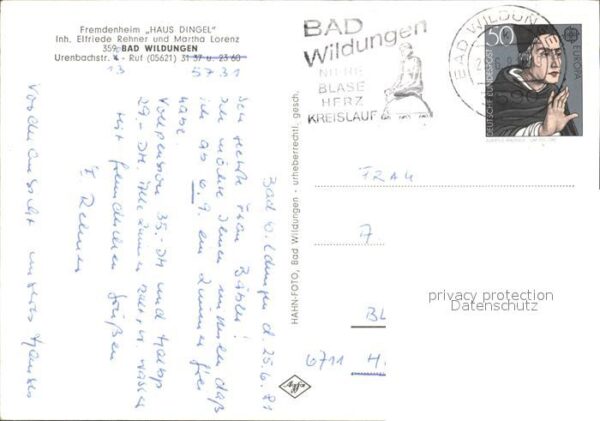 Fremdenheim „HAUS DINGEL"
Inh. Elfriede Rehner und Martha Lorenz
359 BAD WILDUNGEN
Urenbachstr. 4 - Ruf (05621) 31 37 u. 23 60
13
57 31
Bad Wildungen d. 25.6.81
Sehr geehrte Frau
Ich möchte Ihnen mitteilen daß
ich ab 6.9. ein Zimmer frei
habe.
Vollpension 35.- DM und Halbp
29.- DM. Alle Zimmer Wasser
Mit freundlichen Grüßen
E. Rehner
Vorderansicht unseres Hauses
HAHN-FOTO, Bad Wildungen - urheberrechtl. gesch.
Agfa
BAD
Wildungen
NIERE
BLASE
HERZ
KREISLAUF
BAD WILDUN
50
DEUTSCHE BUNDESPOST
EUROPA
FRAU
A
BL
6711 H
privacy protection
Datenschutz